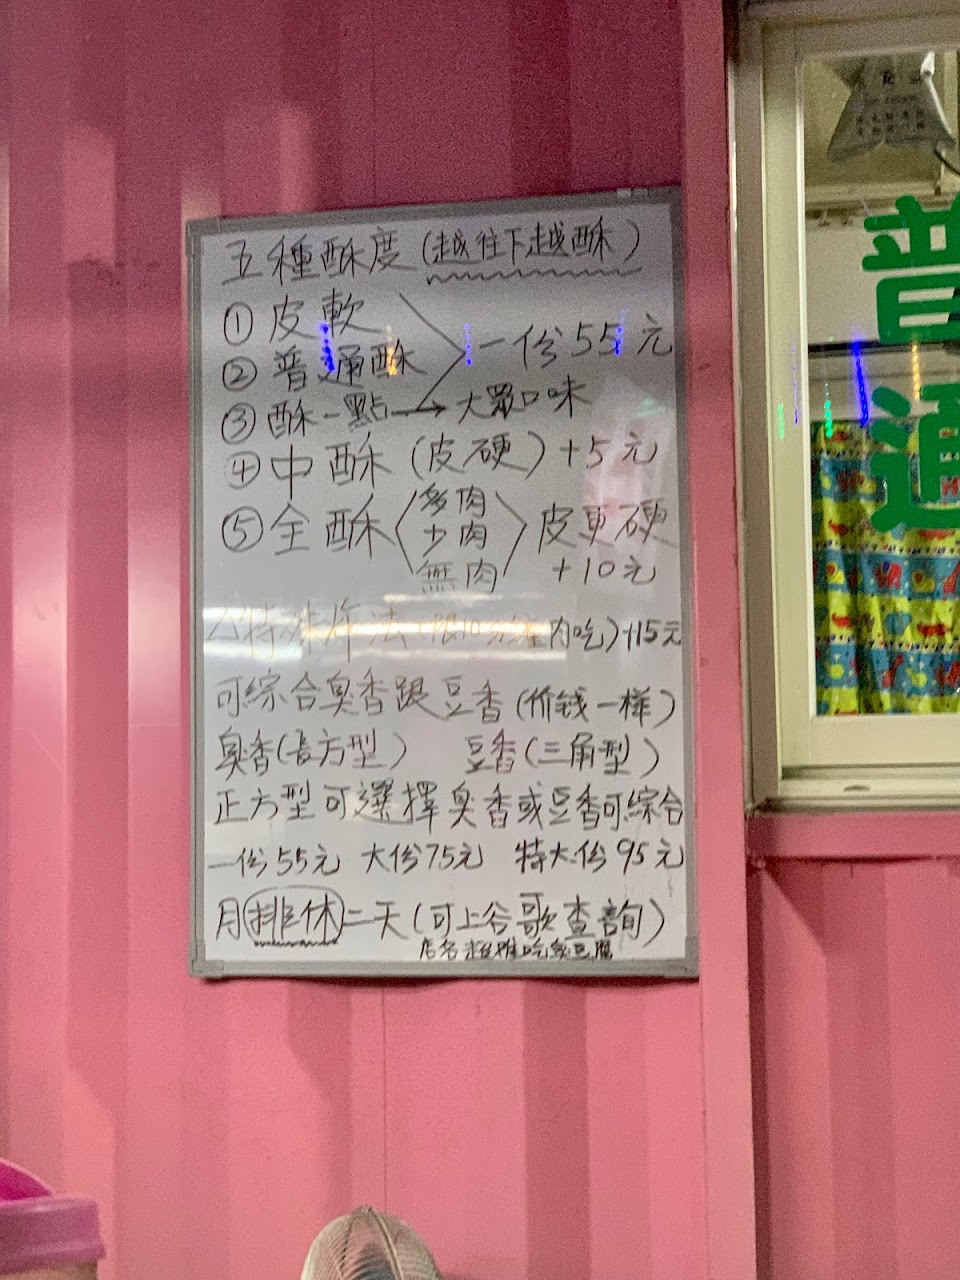 五種酥度(越往下越酥)
①皮軟
②普通酥
一份55元
③酥一點→大眾口味
④中酥(皮硬)+5元
⑤全酥
多肉
少肉
無肉
皮更硬
+10元
△特殊炸法(限10分鐘內吃)+15元
可綜合臭香跟豆香(价钱一樣)
臭香(長方型) 豆香(三角型)
正方型可選擇臭香或豆香可綜合
一份55元 大份75元 特大份95元
月排休二天(可上谷歌查詢)
店名超推吃臭豆腐
普通